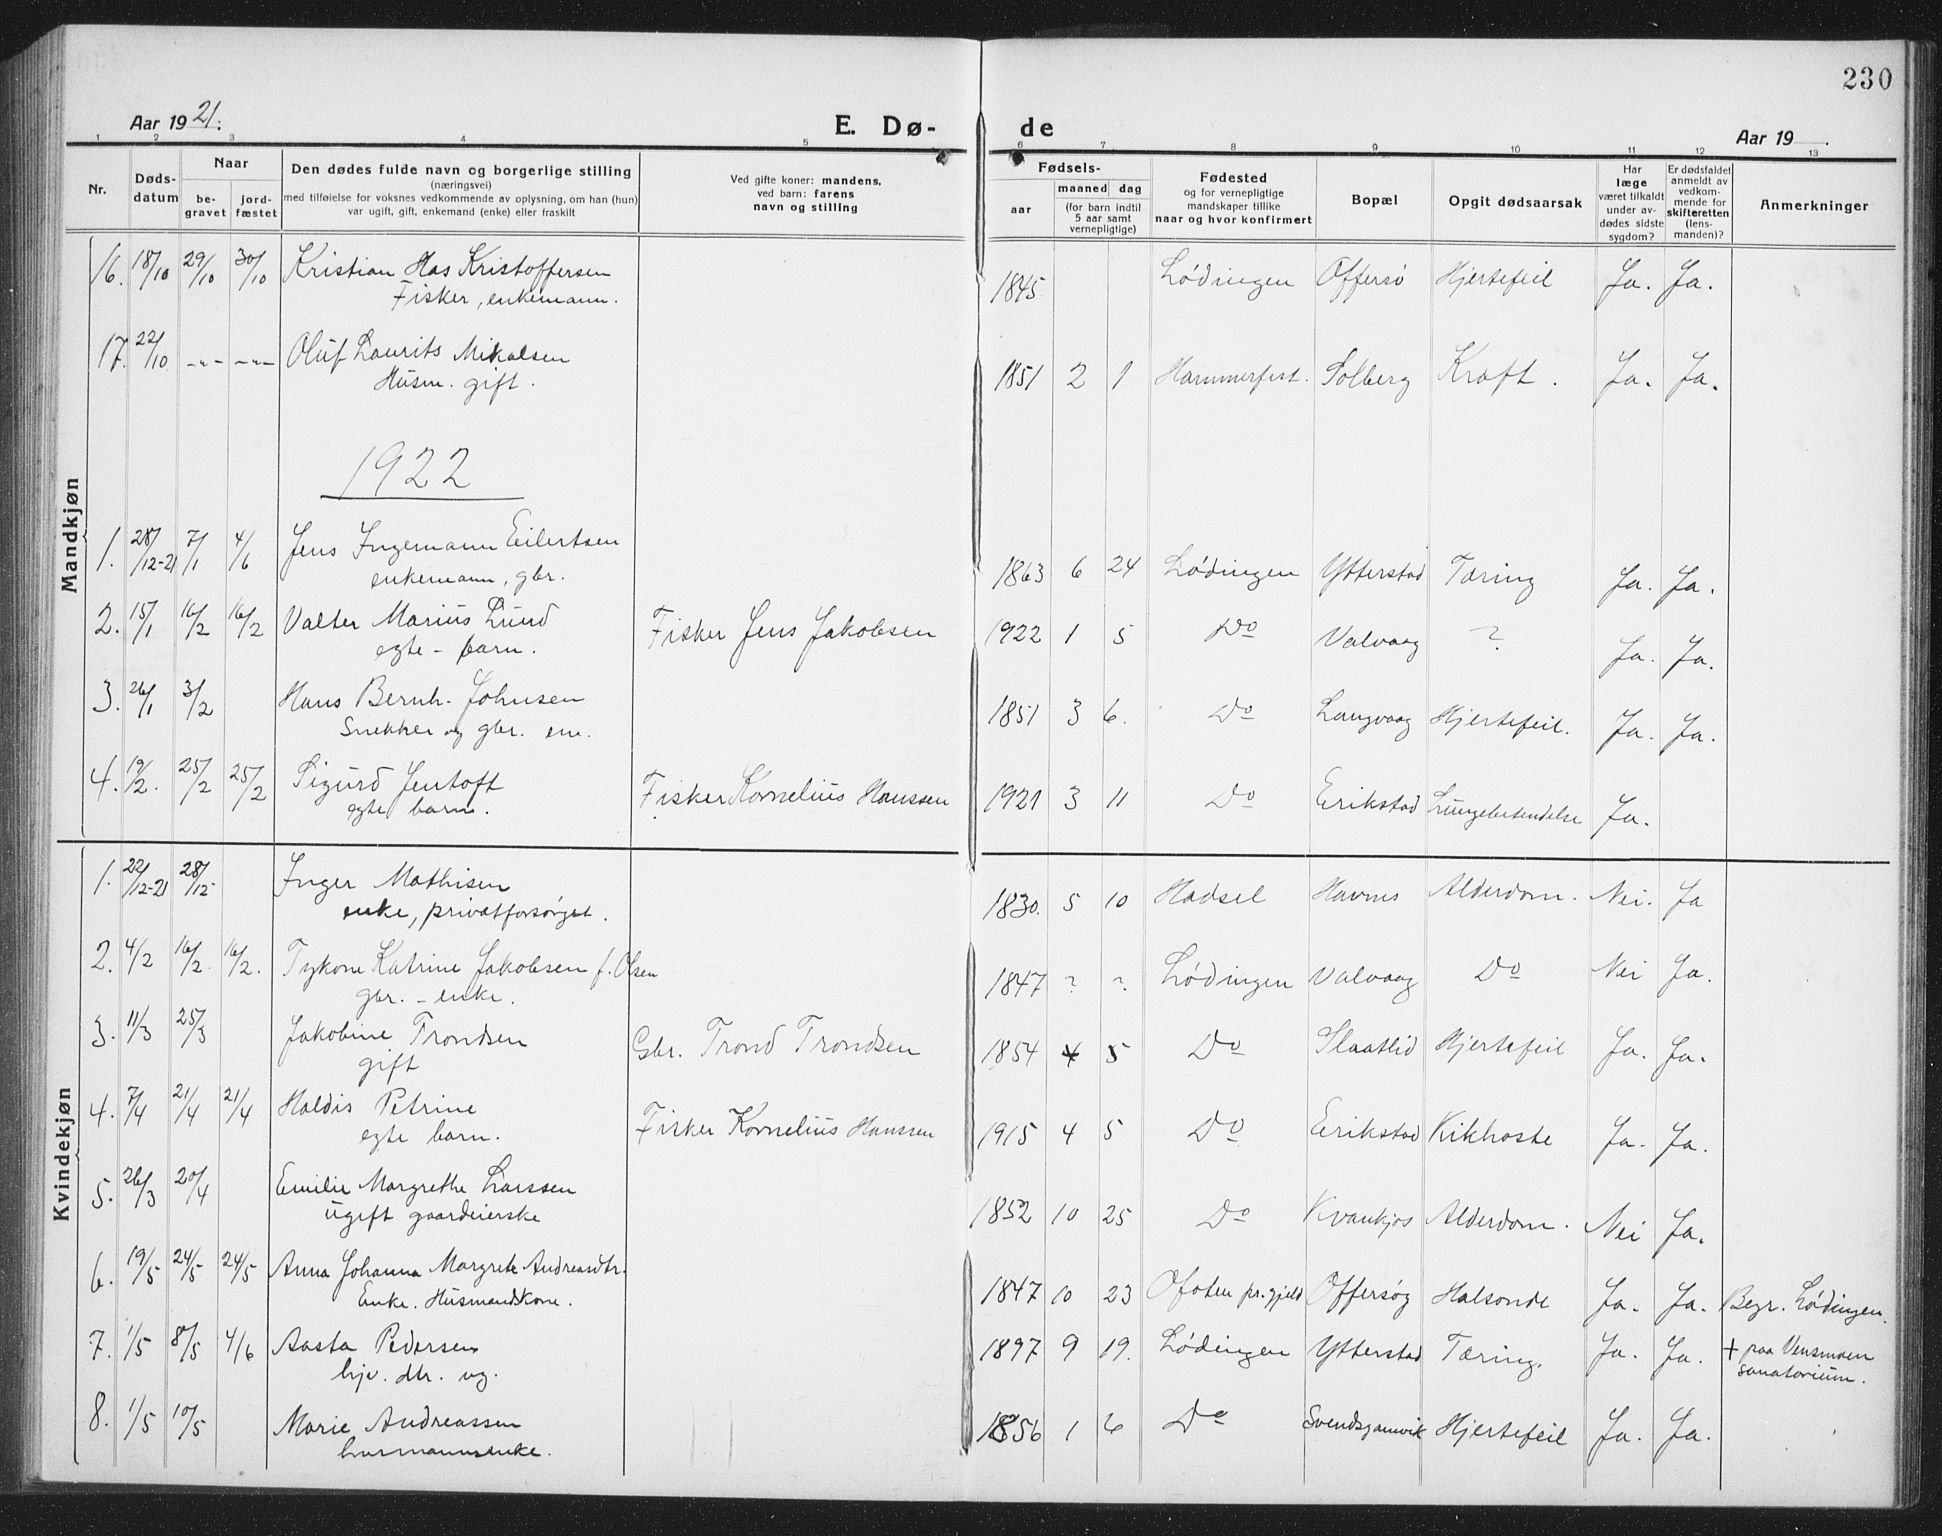 230
Aar 1921. E. Dø- de Aar 19 .
1 2 3 4 5 6 7 8 9 10 11 12 13
Nr. Døds-datum Naar be-gravet jord-fæstet Den dødes fulde navn og borgerlige stilling (næringsvei) med tilføielse for voksnes vedkommende av oplysning, om han (hun) var ugift, gift, enkemand (enke) eller fraskilt Ved gifte koner: mandens, ved barn: farens navn og stilling Fødsels- aar maaned dag (for barn indtil 5 aar samt vernepligtige) Fødested og for vernepligtige mandskaper tillike naar og hvor konfirmert Bopæl Opgit dødsaarsak Har læge været tilkaldt under av-dødes sidste sygdom? Er dødsfaldet anmeldt av vedkom-mende for skifteretten (lens-manden)? Anmerkninger
Mandkjøn
16. 18/10 29/10 30/10 Kristian Has Kristoffersen 1845 Lødingen Offersø Hjertefeil Ja. Ja.
Fisker, enkemann.
17. 22/10 -"- -"- Oluf Laurits Mikalsen 1851 2 1 Hammerfest. Solberg Kræft. Ja. Ja.
Husm. gift.
1922
1. 28/12-21 7/1 4/6 Jens Ingemann Eilertsen 1863 6 24 Lødingen Ytterstad Tæring Ja. Ja.
enkemann, gbr.
2. 15/1 16/2 16/2 Valter Marius Lund Fisker Jens Jakobsen 1922 1 5 Do Valvaag ? Ja. Ja.
egte - barn.
3. 26/1 3/2 Hans Bernh. Johnsen 1851 3 6. Do Langvaag Hjertefeil. Ja. Ja.
Snekker og gbr. em.
4. 19/2. 25/2 25/2 Sigurd Jentoft Fisker Kornelius Hanssen 1921 3 11 Do Erikstad Lungebetendelse Ja.
egte barn.
Kvindekjøn
1. 22/12-21 28/12- Inger Mathisen 1830. 5 10 Hadsel Havnes Alderdom. Nei. Ja
enke, privatforsørget.
2. 4/2 16/2. 16/2. Tykone Katrine Jakobsen f. Olsen 1847 ? ? Lødingen Valvaag Do Nei Ja.
gbr. - enke.
3. 11/3 25/3 Jakobine Trondsen Gbr. Trond Trondsen 1854 4 5 Do Slaatlid Hjertefeil Ja. Ja.
gift
4. 7/4 21/4 21/4 Haldis Petrine Fisker Kornelius Hanssen 1915 4 5 Do Erikstad Kikhoste Ja. Ja.
egte barn.
5. 26/3 20/4 Emilie Margrethe Larssen 1852 10 25 Do Kvankjos Alderdom. Nei Ja.
ugift gaardeierske
6. 19/5 24/5 24/5 Anna Johanna Margrete Andreasdtr. 1847 10 23 Ofoten pr.gjeld Offersøg Halsonde Ja. Ja. Begr. Lødingen.
Enke. Husmandskone.
7. 1/5 8/5 4/6 Aasta Pedersen 1897 9 19. Lødingen Ytterstad Tæring. Ja. Ja. + paa Vensmoen sanatorium.
hjv. dtr. ug.
8. 1/5 10/5 Marie Andreassen 1856 1 6 Do Svendsgamvik Hjertefeil Ja. Ja.
husmannsenke.